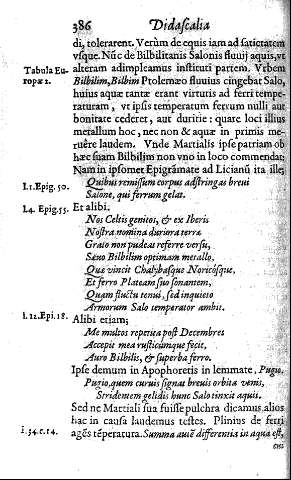 386 Didascalia
di, tolerarent. Verùm de equis iam ad satietatem
vsque. Nũc de Bilbilitanis Salonis fluuij aquis, vt
alteram adimpleamus instituti partem. Vrbem
Tabula Eu-
ropæ 2.
Bilbilim, Bilbim Ptolemæo fluuius cingebat Salo,
huius aquæ tantæ erant virtutis ad ferri tempe-
raturam, vt ipsis temperatum ferrum nulli aut
bonitate cederet, aut duritie: quare loci illius
metallum hoc, nec non & aquæ in primis me-
ruêre laudem. Vnde Martialis ipse patriam ob
hæc suam Bilbilim non vno in loco commendat;
Nam in ipsomet Epigrámate ad Licianũ ita ille;
l.1. Epig. 50.
Quibus remissum corpus adstringas breui
Salone, qui ferrum gelat.
l.4. Epig. 55.
Et alibi.
Nos Celtis genitos, & ex Iberis
Nostra nomina duriora terræ
Graio non pudeat referre versu,
Sæuo Bilbilim optimam metallo,
Quæ vincit Chalybasque Noricosque,
Et ferro Plateam suo sonantem,
Quam fluctu tenui, sed inquieto
Armorum Salo temperator ambit.
l.12. Epi. 18.
Alibi etiam;
Me multos repetita post Decembres
Accepit mea rusticumque fecit,
Auro Bilbilis, & superba ferro.
Ipse demum in Apophoretis in lemmate, Pugio.
Pugio, quem curuis signat breuis orbita venis,
Stridentem gelidis hunc Salo tinxit aquis.
Sed ne Martiali sua fuisse pulchra dicamus alios
hac in causa laudemus testes. Plinius de ferri
l.34. c.14.
agẽs tẽperatura. Summa autẽ differentia in aqua est,